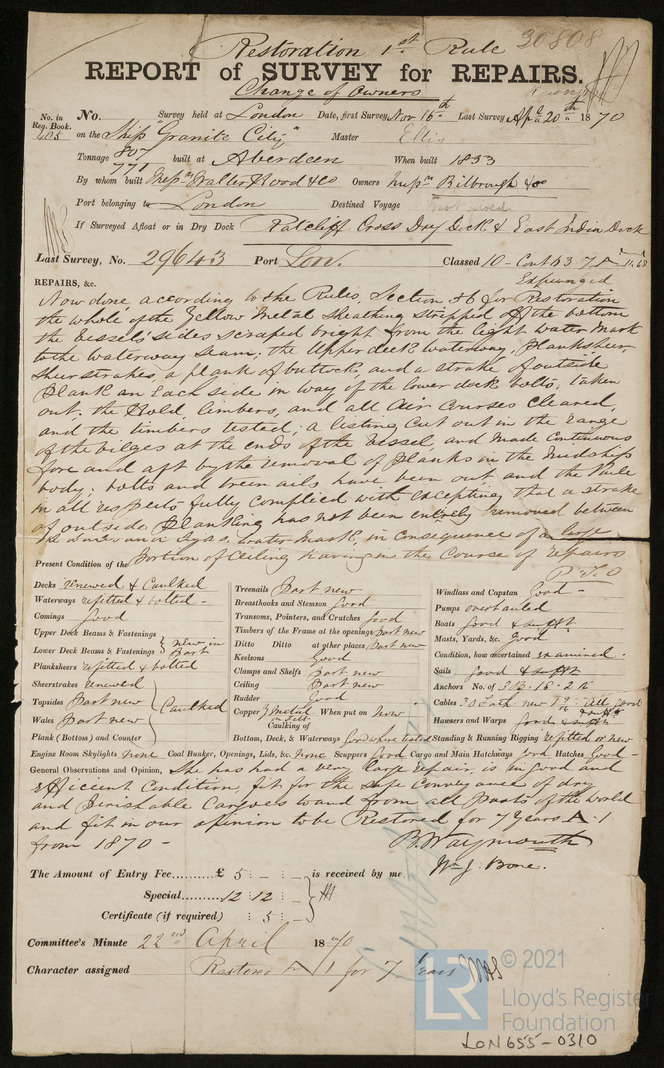 Restoration 1st Rule 30808
REPORT of SURVEY for REPAIRS.
Change of Owners
No. in Reg. Book. 405
No. Survey held at London Date, first Survey Nov 16th Last Survey Apl 20th 1870
on the Ship "Granite City" Master Ellis
Tonnage 807 771 built at Aberdeen When built 1853
By whom built Messrs Walter Hood & Co Owners Messrs Bilbrough & Co
Port belonging to London Destined Voyage
If Surveyed Afloat or in Dry Dock Ratcliff Cross Dry Dock & East India Dock
Last Survey, No. 29643 Port Lon. Classed 10 - Contd 3 7 A 11.68
Expunged
REPAIRS, &c.
Now done, according to the Rules, Section 56 for Restoration
the whole of the Yellow Metal sheathing stripped off the bottom
the Vessel's sides scraped bright from the light water mark
to the waterway seam; the Upper deck waterway, Plankshear,
Sheerstrakes, a plank of buttock, and a strake of outside
Plank on Each side in way of the lower deck bolts, taken
out, the Hold, limbers, and all Air Courses Cleared,
and the timbers tested; a listing Cut out in the range
of the bilges at the ends of the Vessel and made Continuous
fore and aft by the removal of Planks in the Midships
body; bolts and treenails have been out and the Rule
in all respects fully complied with excepting that a strake
of outside Planking has not been entirely removed between
light water mark, in consequence of a large
portion of Ceiling having in the Course of repairs
P.T.O
Present Condition of the
Decks renewed & Caulked
Waterways refitted & bolted -
Comings Good
Upper Deck Beams & Fastenings
Lower Deck Beams & Fastenings } New in Part
Planksheers refitted & bolted
Sheerstrakes renewed
Topsides Part new
Wales Part new
Plank (Bottom) and Counter
} Caulked
Treenails Part new
Breasthooks and Stemson Good
Transoms, Pointers, and Crutches Good
Timbers of the Frame at the openings Part new
Ditto Ditto at other places Part new
Keelsons Good
Clamps and Shelfs Part new
Ceiling Part new
Rudder Good
Copper Y Metal on Felt When put on Now
Caulking of Bottom, Deck, & Waterways Good
Windlass and Capstan Good -
Pumps overhauled
Boats Good & sufft
Masts, Yards, &c. Good
Condition, how ascertained examined -
Sails Good & sufft
Anchors No. of 3B. 1S. 2K
Cables
Hawsers and Warps Good & sufft
Standing & Running Rigging refitted or new
Engine Room Skylights none Coal Bunker, Openings, Lids, &c. None Scuppers Good Cargo and Main Hatchways Good Hatches Good -
General Observations and Opinion, She has had a very large repair, is in Good and
Efficient Condition, fit for the safe Conveyance of dry
and Perishable Cargoes to and from all parts of the world
and fit in our opinion to be Restored for 7 Years A.1
from 1870 -
B. Waymouth
Wm J. Bone.
The Amount of Entry Fee......... £ 5 : - : is received by me
Special......... 12 : 12 :
Certificate (if required) : 5 :
Committee's Minute 22nd April 1870
Character assigned Restored A 1 for 7 Years
© 2021
LR
Lloyd's Register
Foundation
LON655-0310